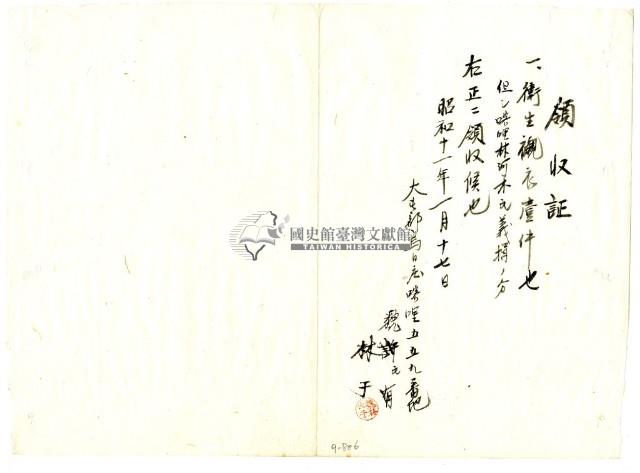 領収証
一、衛生襯衣壹件也
但シ喀哩林阿禾氏義捐ノ分
右正ニ領収候也
昭和十一年一月十七日
大屯郡烏日庄喀哩五五九番地
魏許氏有
林于
國史館臺灣文獻館
TAIWAN HISTORICA
9-886